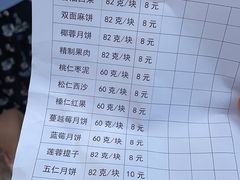 82 克/块 8 元
双面麻饼 82 克/块 8 元
椰蓉月饼 82 克/块 8 元
精制果肉 82 克/块 8 元
桃仁枣泥 60 克/块 8 元
松仁西沙 60 克/块 8 元
榛仁红果 60 克/块 8 元
蔓越莓月饼 60 克/块 8 元
蓝莓月饼 60 克/块 8 元
莲蓉提子 82 克/块 8 元
五仁月饼 82 克/块 10 元